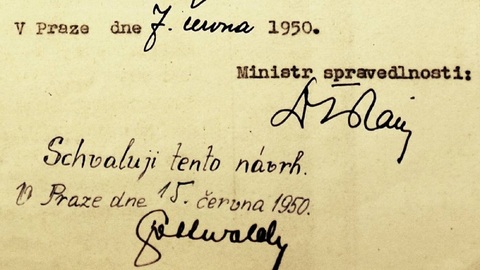 V Praze dne 7. června 1950.
Ministr spravedlnosti:
Schvaluji tento návrh.
V Praze dne 15. června 1950.
Gottwald